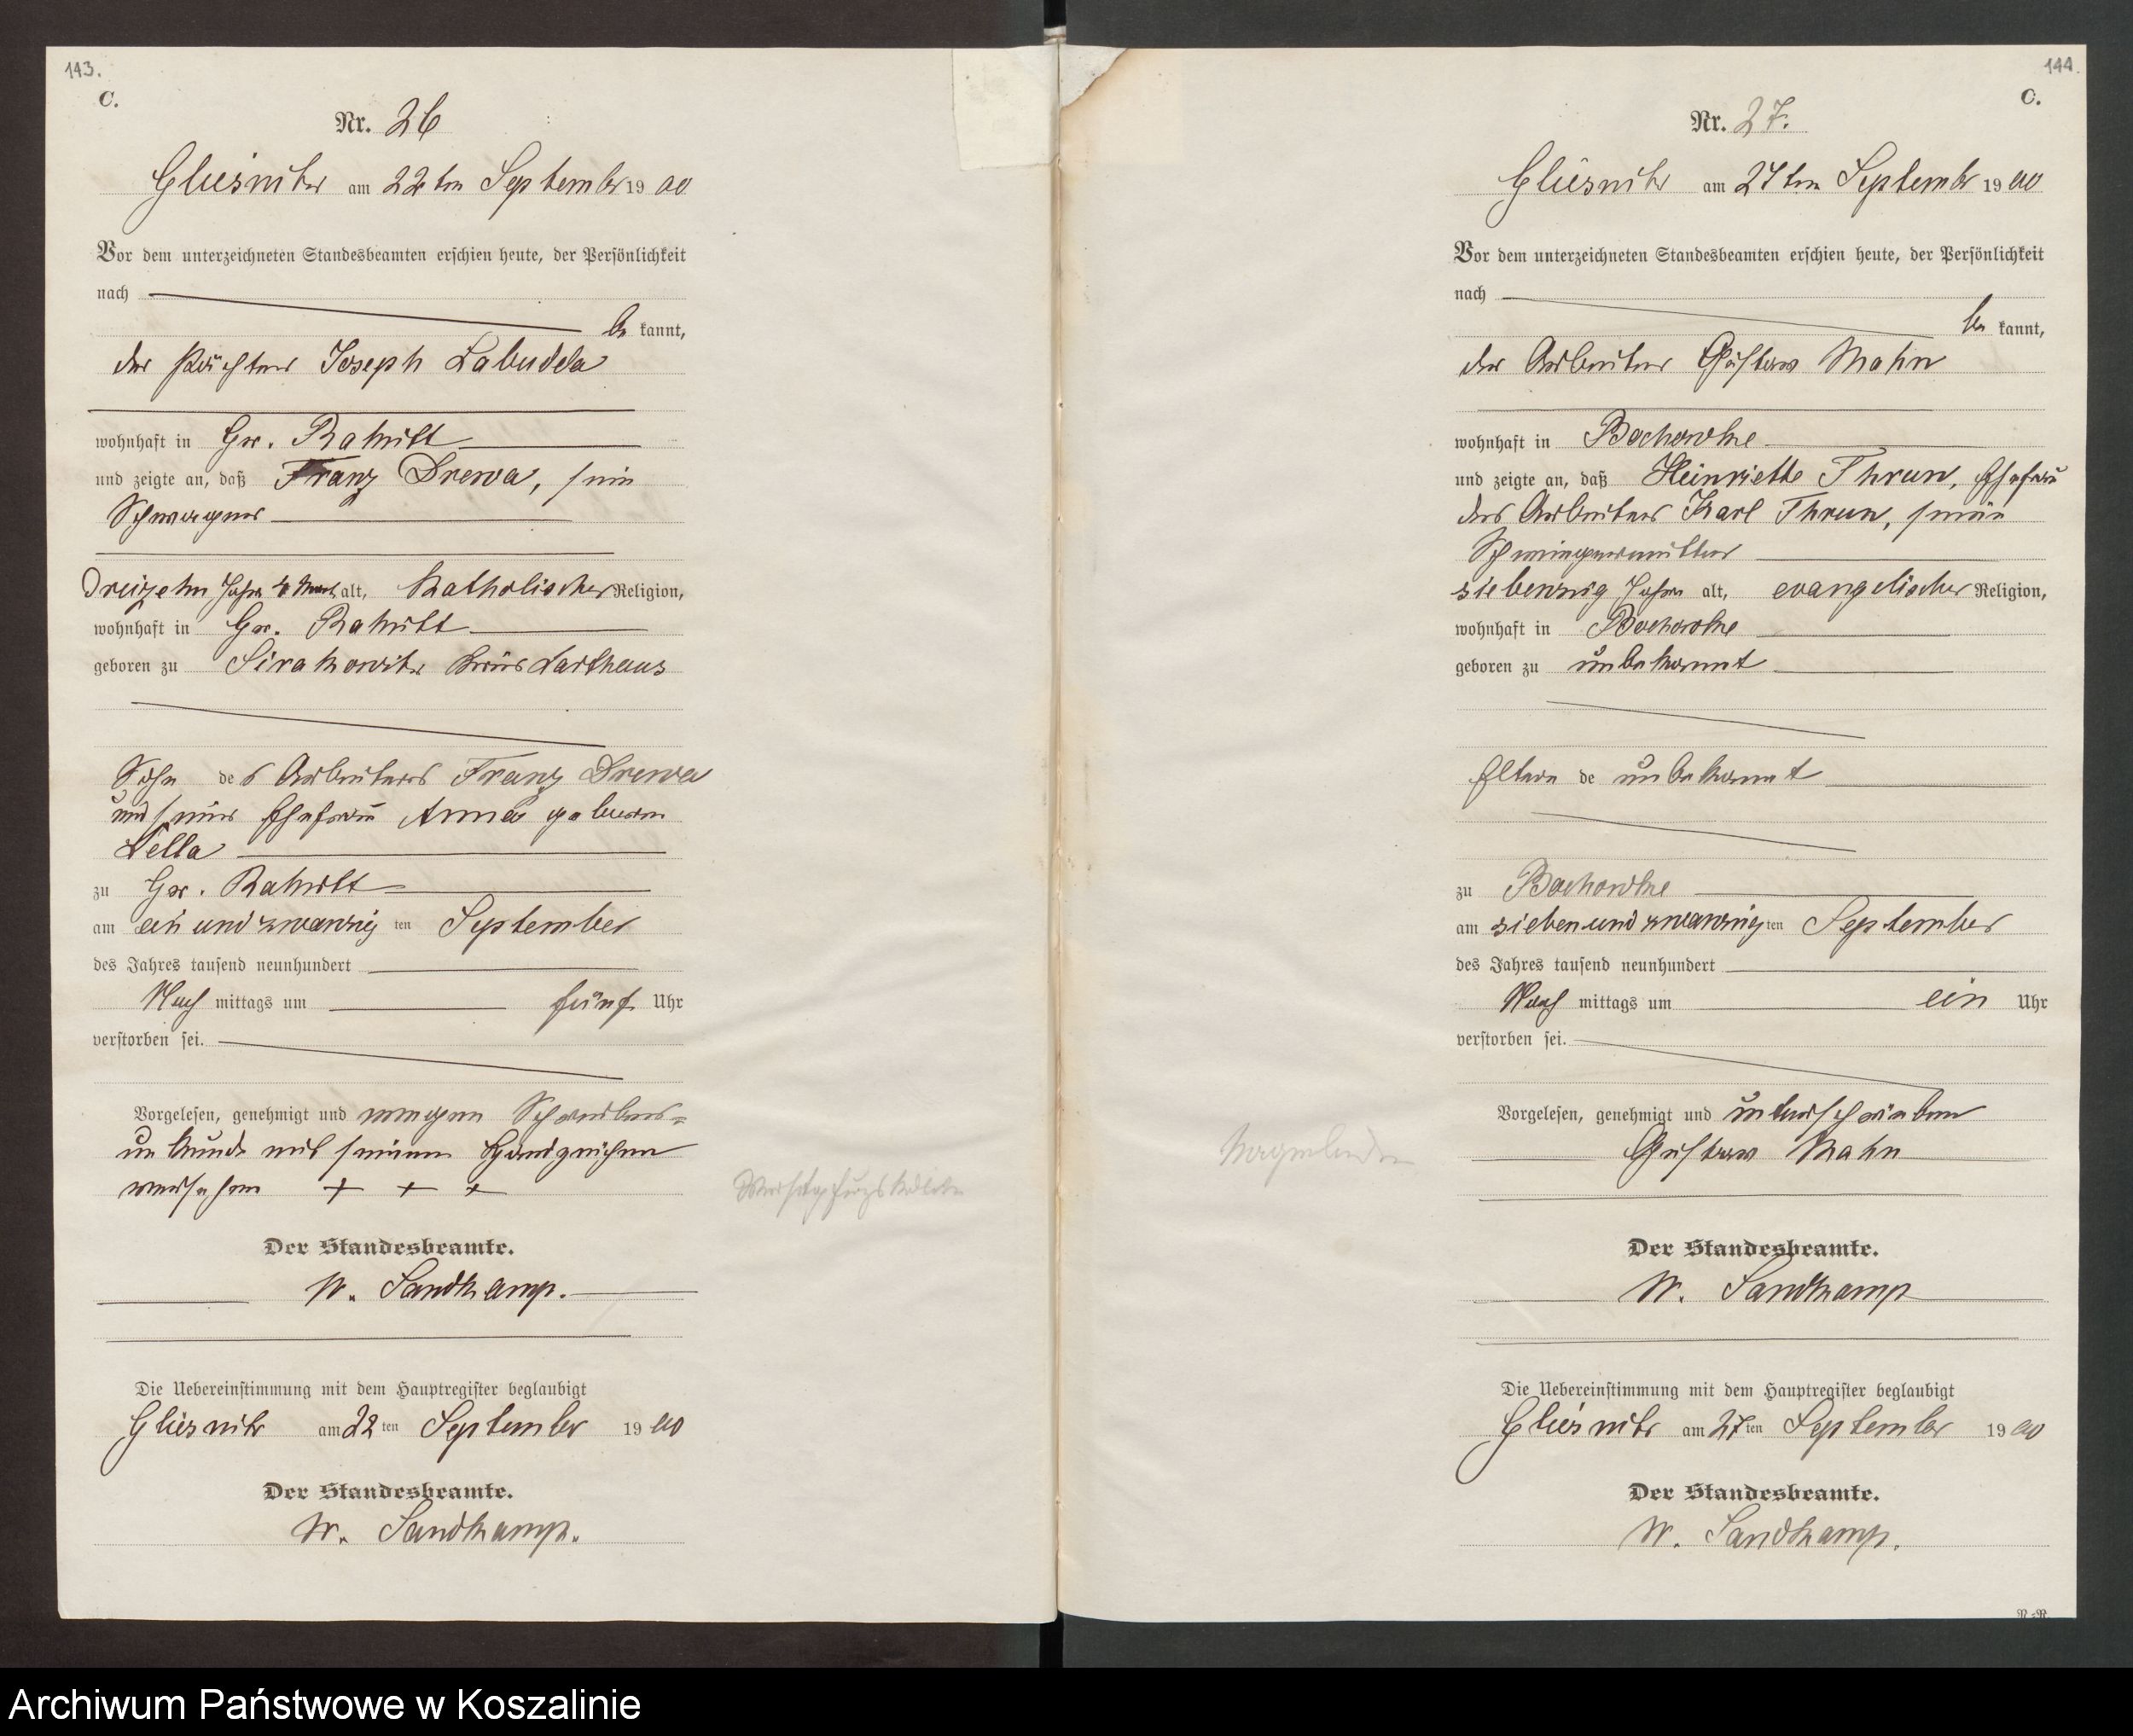 143.
C.
Nr. 26
Gliesnitz am 22ten September 1900
Vor dem unterzeichneten Standesbeamten erschien heute, der Persönlichkeit
nach
be kannt,
der Pächter Joseph Labudda
wohnhaft in Gr. Rakitt
und zeigte an, daß Franz Drewa, sein
Schwager
Dreizehn Jahre 4 Mont alt, Katholischer Religion,
wohnhaft in Gr. Rakitt
geboren zu Sirakowitz Kreis Karthaus
Sohn des Arbeiters Franz Drewa
und seiner Ehefrau Anna geboren
Lella
zu Gr. Rakitt
am ein und zwanzig ten September
des Jahres tausend neunhundert
Nach mittags um fünf Uhr
verstorben sei.
Vorgelesen, genehmigt und wegen Schreibens-
unkunde mit seinem Handzeichen
versehen + + +
Der Standesbeamte.
W. Sandkamp.
Die Uebereinstimmung mit dem Hauptregister beglaubigt
Gliesnitz am 22 ten September 1900
Der Standesbeamte.
W. Sandkamp.
144.
C.
Nr. 27.
Gliesnitz am 27ten September 1900
Vor dem unterzeichneten Standesbeamten erschien heute, der Persönlichkeit
nach
be kannt,
der Arbeiter Gustav Mahn
wohnhaft in Bochowke
und zeigte an, daß Heinriette Thrun, Ehefrau
des Arbeiters Karl Thrun, seine
Schwiegermutter
siebenzig Jahre alt, evangelischer Religion,
wohnhaft in Bochowke
geboren zu unbekannt
Eltern de unbekannt
zu Bochowke
am sieben und zwanzig ten September
des Jahres tausend neunhundert
Nach mittags um ein Uhr
verstorben sei.
Vorgelesen, genehmigt und unterschrieben
Gustav Mahn
Der Standesbeamte.
W. Sandkamp
Die Uebereinstimmung mit dem Hauptregister beglaubigt
Gliesnitz am 27 ten September 1900
Der Standesbeamte.
W. Sandkamp.
Archiwum Państwowe w Koszalinie